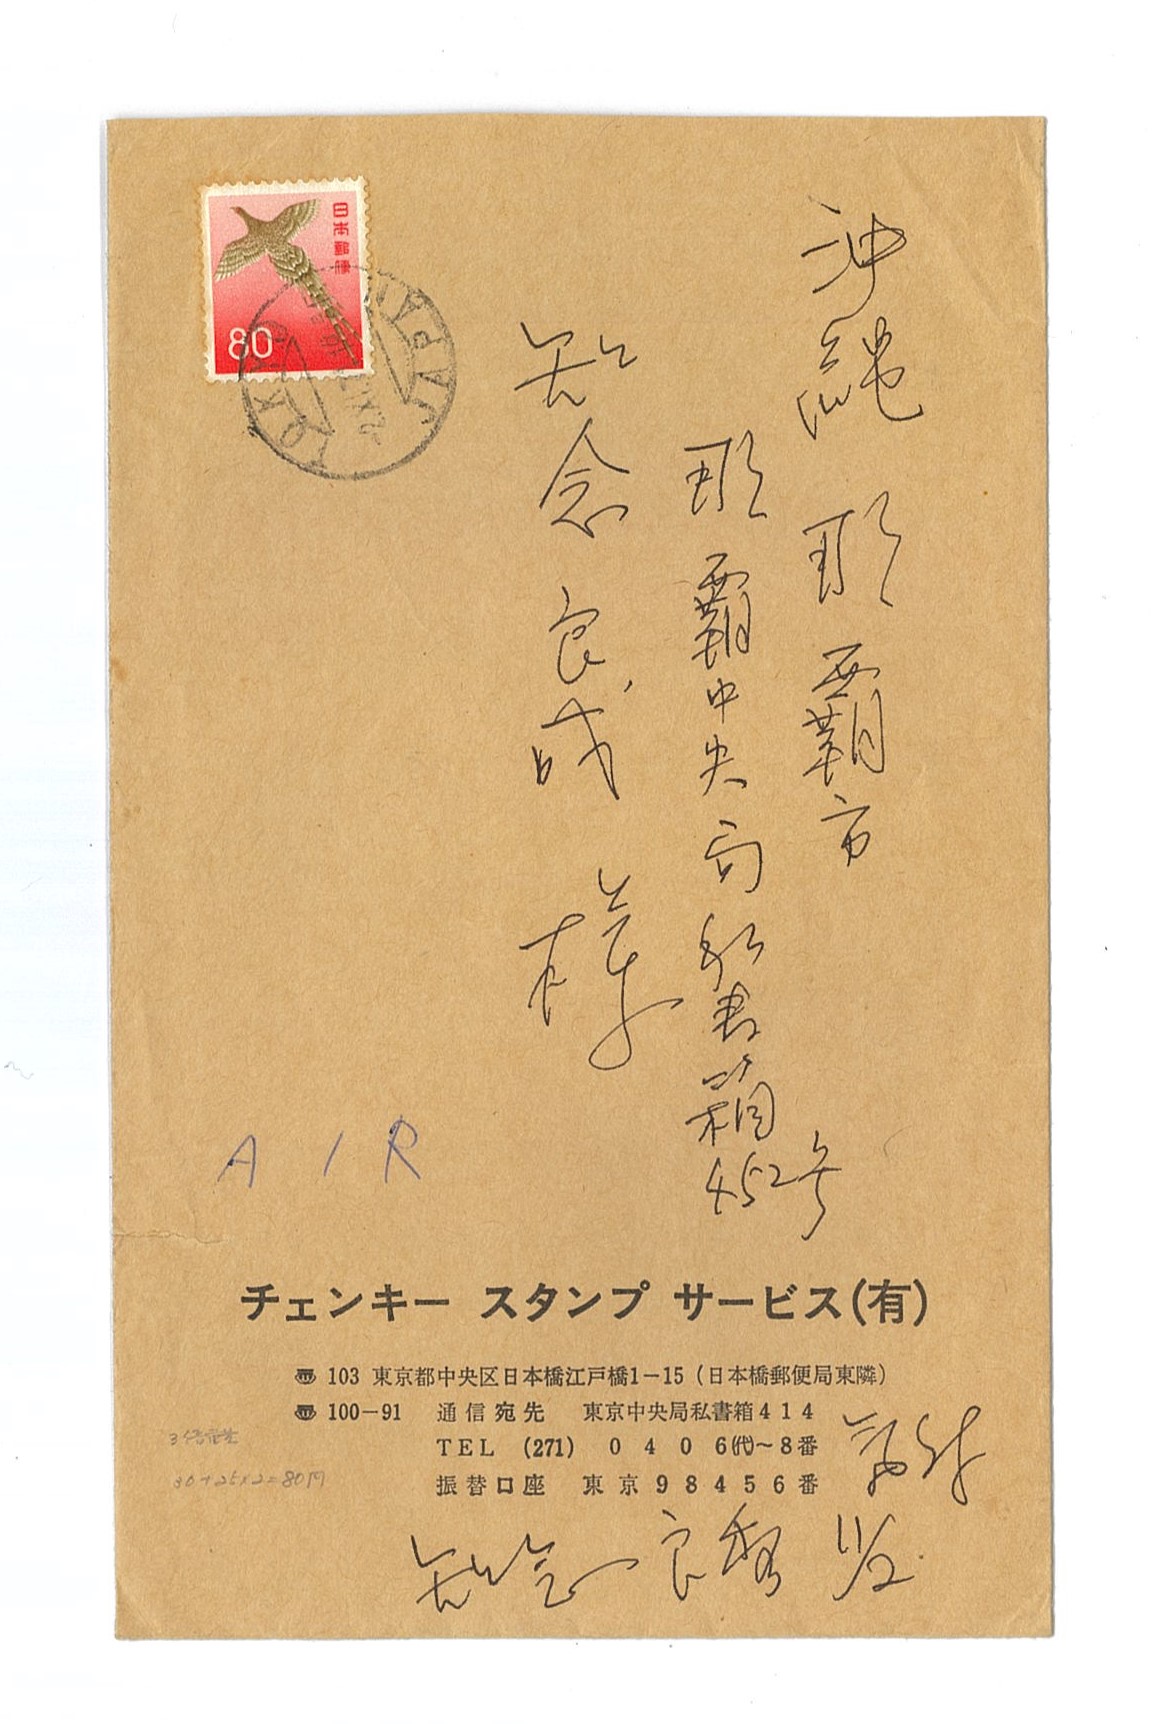 日本郵便
80
JAPAN
TOKYO
沖縄 那覇市
那覇中央局私書箱
452号
知念良成 様
AIR
チェンキー スタンプ サービス(有)
103 東京都中央区日本橋江戸橋1-15(日本橋郵便局東隣)
100-91 通信宛先 東京中央局私書箱414
TEL (271) 0406(代)~8番
振替口座 東京98456番
30+25×2=80円
知念